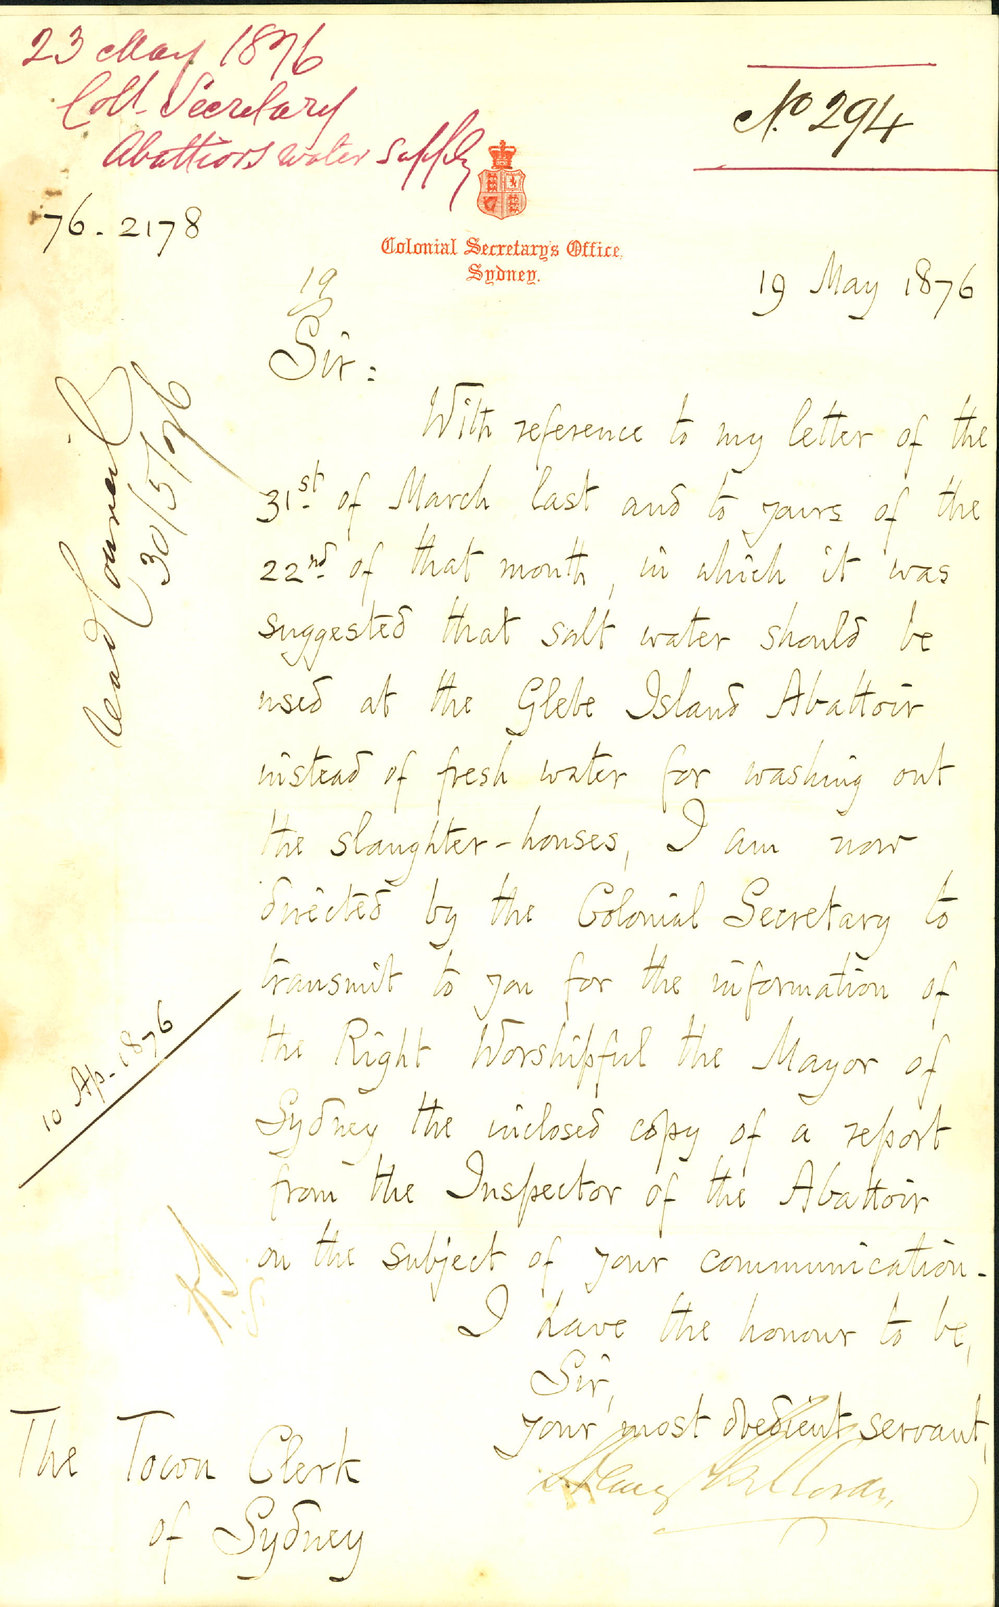 23 May 1876
Coll. Secretary
Abattiors water supply
No 294
76-2178
Colonial Secretary's Office,
Sydney.
19
19 May 1876
Sir:
With reference to my letter of the
31st of March last and to yours of the
22nd of that month, in which it was
suggested that salt water should be
used at the Glebe Island Abattoir
instead of fresh water for washing out
the slaughter-houses, I am now
directed by the Colonial Secretary to
transmit to you for the information of
the Right Worshipful the Mayor of
Sydney the inclosed copy of a report
from the Inspector of the Abattoir
on the subject of your communication-
I have the honour to be,
Sir,
your most obedient servant,
Henry Halloran
The Town Clerk
of Sydney
Read Council
30/5/76
10 Ap. 1876